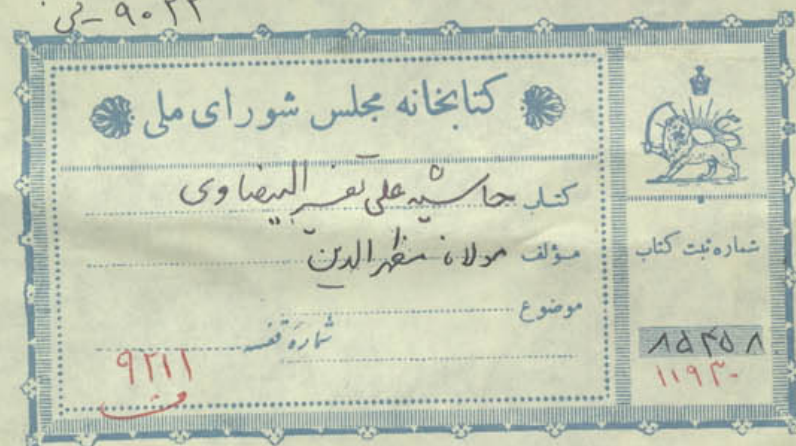 ۹۰۲۲ - فی
کتابخانه مجلس شورای ملی
کتاب حاشیه علی تفسیر البیضاوی
مؤلف مولانا مظهرالدین
موضوع
شماره قفسه
۹۲۱۱
شماره ثبت کتاب
۸۵۴۵۸
۱۱۹۳۰